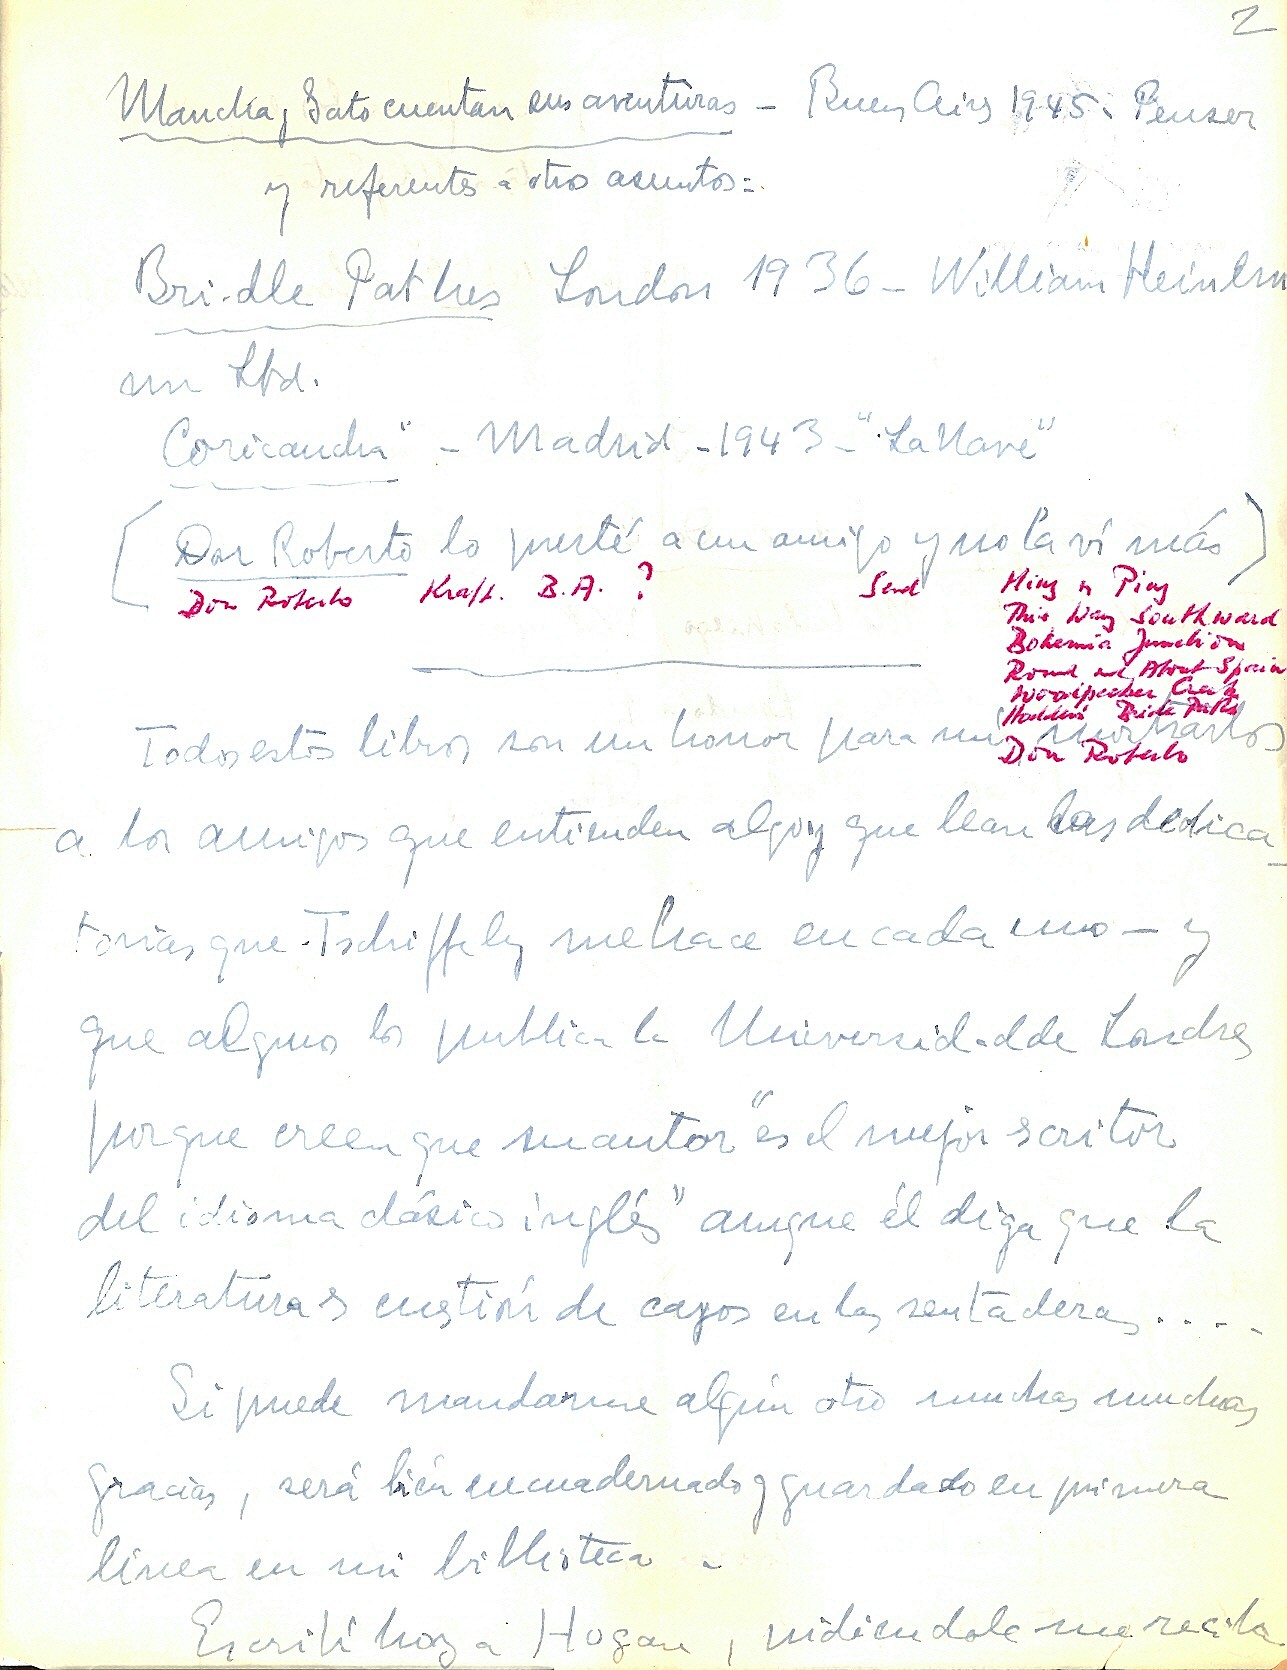 2
Mancha y Gato cuentan sus aventuras - Buenos Aires 1945. Peuser
y referentes a otros asuntos =
Bridle Paths London 1936 - William Heinem
ann Ltd.
Coricancha" - Madrid - 1943 - "La Nave"
(Don Roberto lo presté a un amigo y no la ví más)
Don Roberto Kraft. B.A. ? Send
Ming & Ping
This Way Southward
Bohemia Junction
Round and About Spain
Woodpecker Creek
Bridle Paths
Don Roberto
Todos estos libros son un honor para mi mostrarlos
a los amigos que entienden algo y que lean las dedica_
torias que Tschiffely me hace en cada uno - y
que algunos los publica la Universidad de Londres
porque creen que su autor "es el mejor scritor
del idioma clásico inglés" aunque él diga que la
literatura es cuestión de cayos en las sentaderas . . . .
Si puede mandarme algún otro muchas muchas
gracias, será bién encuadernado y guardado en primera
línea en mi biblioteca -
Escribí hoy a Hogan, pidiendole me reciba